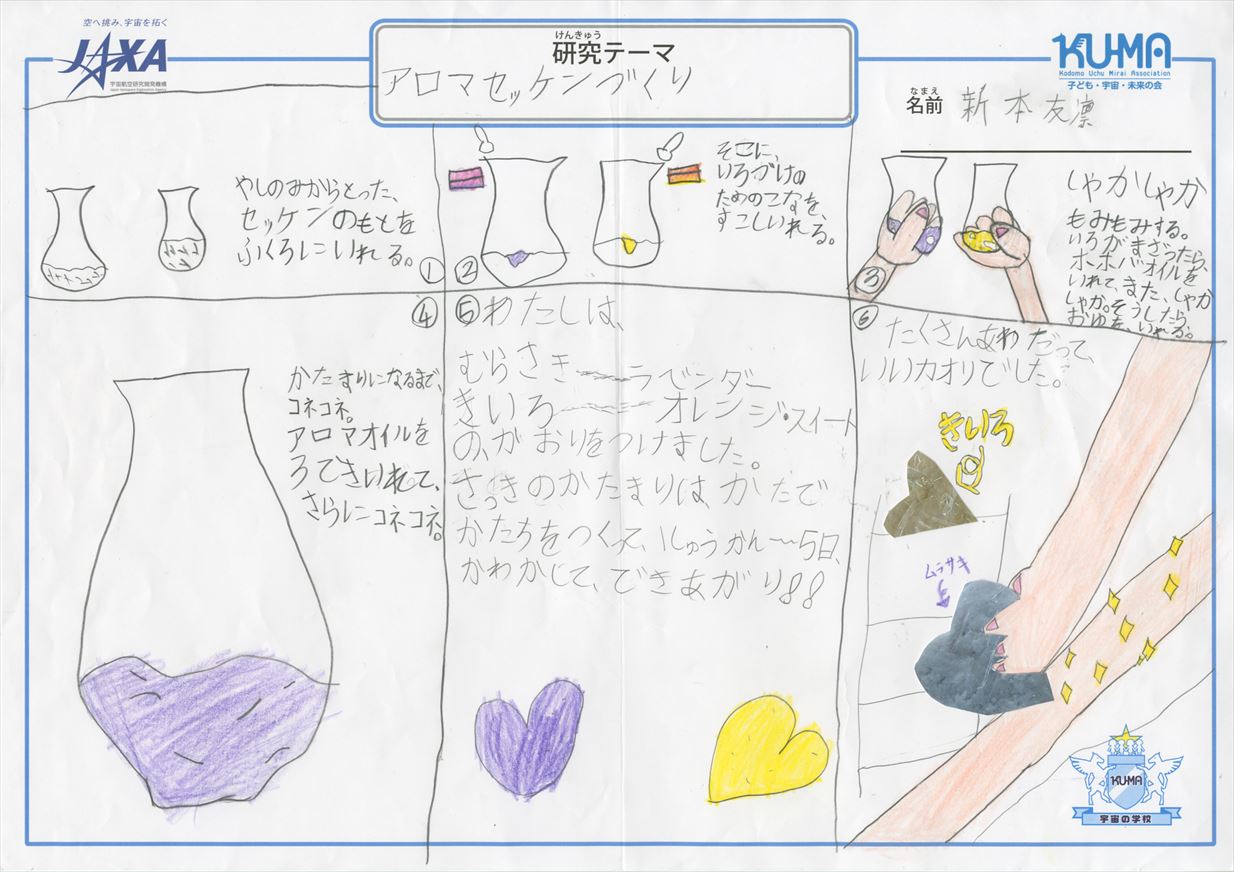 空へ挑み、宇宙を拓く
JAXA
宇宙航空研究開発機構
Japan Aerospace Exploration Agency
けんきゅう
研究テーマ
アロマセッケンづくり
KU-MA
Kodomo Uchu Mirai Association
子ども・宇宙・未来の会
なまえ
名前 新本友凛
やしのみからとった、
セッケンのもとを
ふくろにいれる。
①
②
そこに、
いろづけの
ためのこなを、
すこしいれる。
③
しゃかしゃか
もみもみする。
いろがまざったら、
ホホバオイルを
いれて、また、しゃか
しゃか。そうしたら
おゆを、いれる。
④
かたまりになるまで、
コネコネ。
アロマオイルを
3てきいれて、
さらにコネコネ。
⑤わたしは、
むらさき〜ラベンダー
きいろ〜オレンジ・スイート
の、かおりをつけました。
さっきのかたまりは、かたで
かたちをつくって、1しゅうかん〜5日、
かわかして、できあがり!!
⑥
たくさんあわだって、
いいカオリでした。
きいろ
ムラサキ
KUMA
宇宙の学校